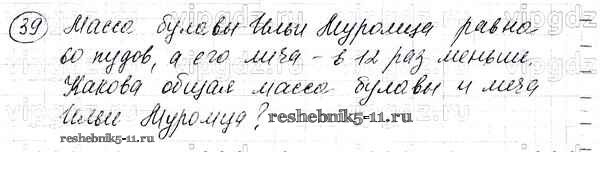 39 Масса булавы Ильи Муромца равна
60 пудов, а его меча - в 12 раз меньше.
Какова общая масса булавы и меча
Ильи Муромца?
reshebnik5-11.ru
reshebnik5-11.ru